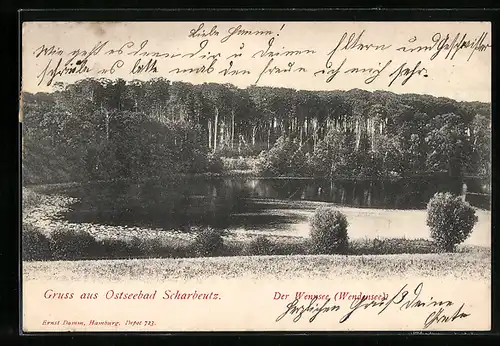 Liebe Hanna!
Wie geht es denn dir und deinen Eltern und Geschwister
schreibe es bald mal denn freue ich mich sehr
Gruss aus Ostseebad Scharbeutz.
Der Wennsee (Wendensee)
herzlichen Gruß Deine
Grete
Ernst Damm, Hamburg. Depot 723.